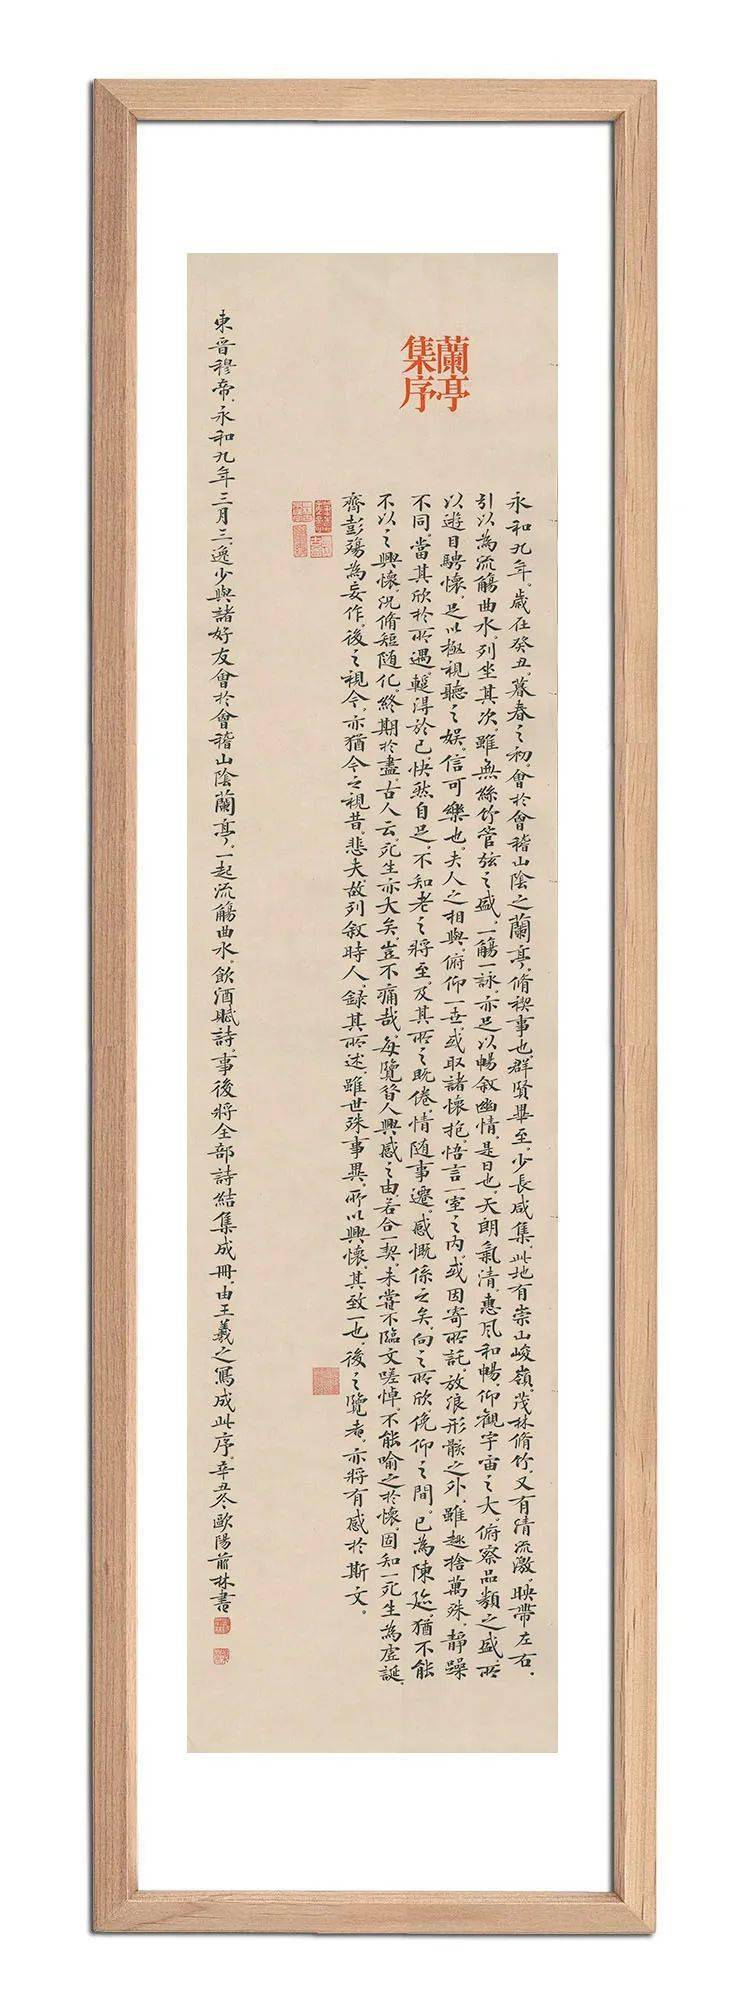 蘭亭
集序
永和九年。歲在癸丑。暮春之初。會於會稽山陰之蘭亭。脩禊事也。群賢畢至。少長咸集。此地有崇山峻嶺。茂林脩竹。又有清流激。映帶左右。
引以為流觴曲水。列坐其次。雖無絲竹管弦之盛。一觴一詠。亦足以暢敘幽情。是日也。天朗氣清。惠風和暢。仰觀宇宙之大。俯察品類之盛。所
以遊目騁懷。足以極視聽之娛。信可樂也。夫人之相與。俯仰一世。或取諸懷抱。悟言一室之內。或因寄所託。放浪形骸之外。雖趣捨萬殊。靜躁
不同。當其欣於所遇。暫得於己。快然自足。不知老之將至。及其所之既倦。情隨事遷。感慨係之矣。向之所欣。俛仰之間。已為陳跡。猶不能
不以之興懷。況脩短隨化。終期於盡。古人云。死生亦大矣。豈不痛哉。每覽昔人興感之由。若合一契。未嘗不臨文嗟悼。不能喻之於懷。固知一死生為虛誕。
齊彭殤為妄作。後之視今。亦猶今之視昔。悲夫。故列敘時人。錄其所述。雖世殊事異。所以興懷。其致一也。後之覽者。亦將有感於斯文。
東晉穆帝。永和九年三月三。逸少與諸好友會於會稽山陰蘭亭。一起流觴曲水。飲酒賦詩。事後將全部詩結集成冊。由王羲之寫成此序。辛丑冬歐陽林書